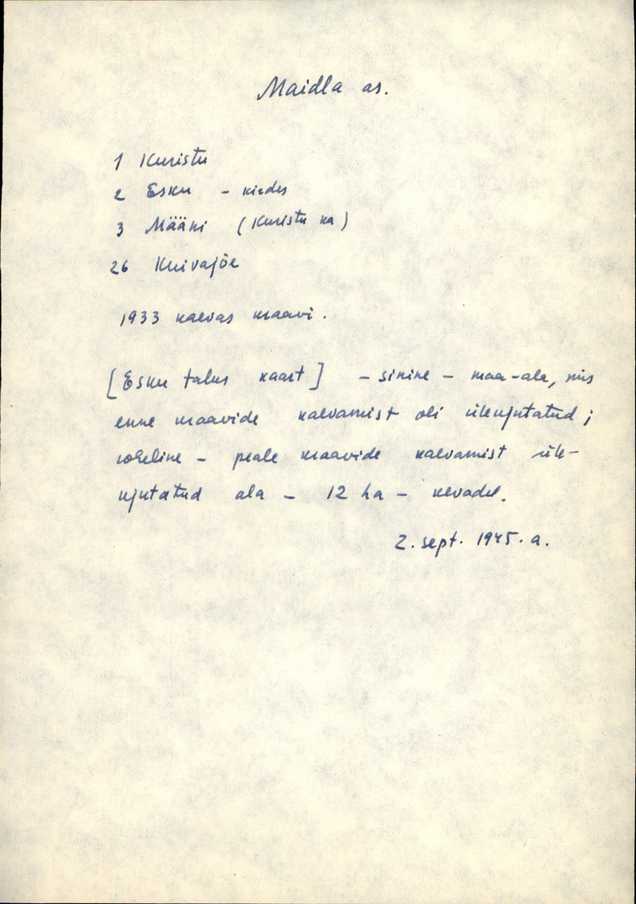 Maidla as.
1 Kuristu
2 Esku - kirdes
3 Määni (Kuristu ka)
26 Kuivajõe
1933 kaevas kraavi.
[Esku talus kaart] - sinine - maa-ala, mis
enne kraavide kaevamist oli üleujutatud;
roheline - peale kraavide kaevamist üle-
ujutatud ala - 12 ha - kevadel.
2. sept. 1945. a.